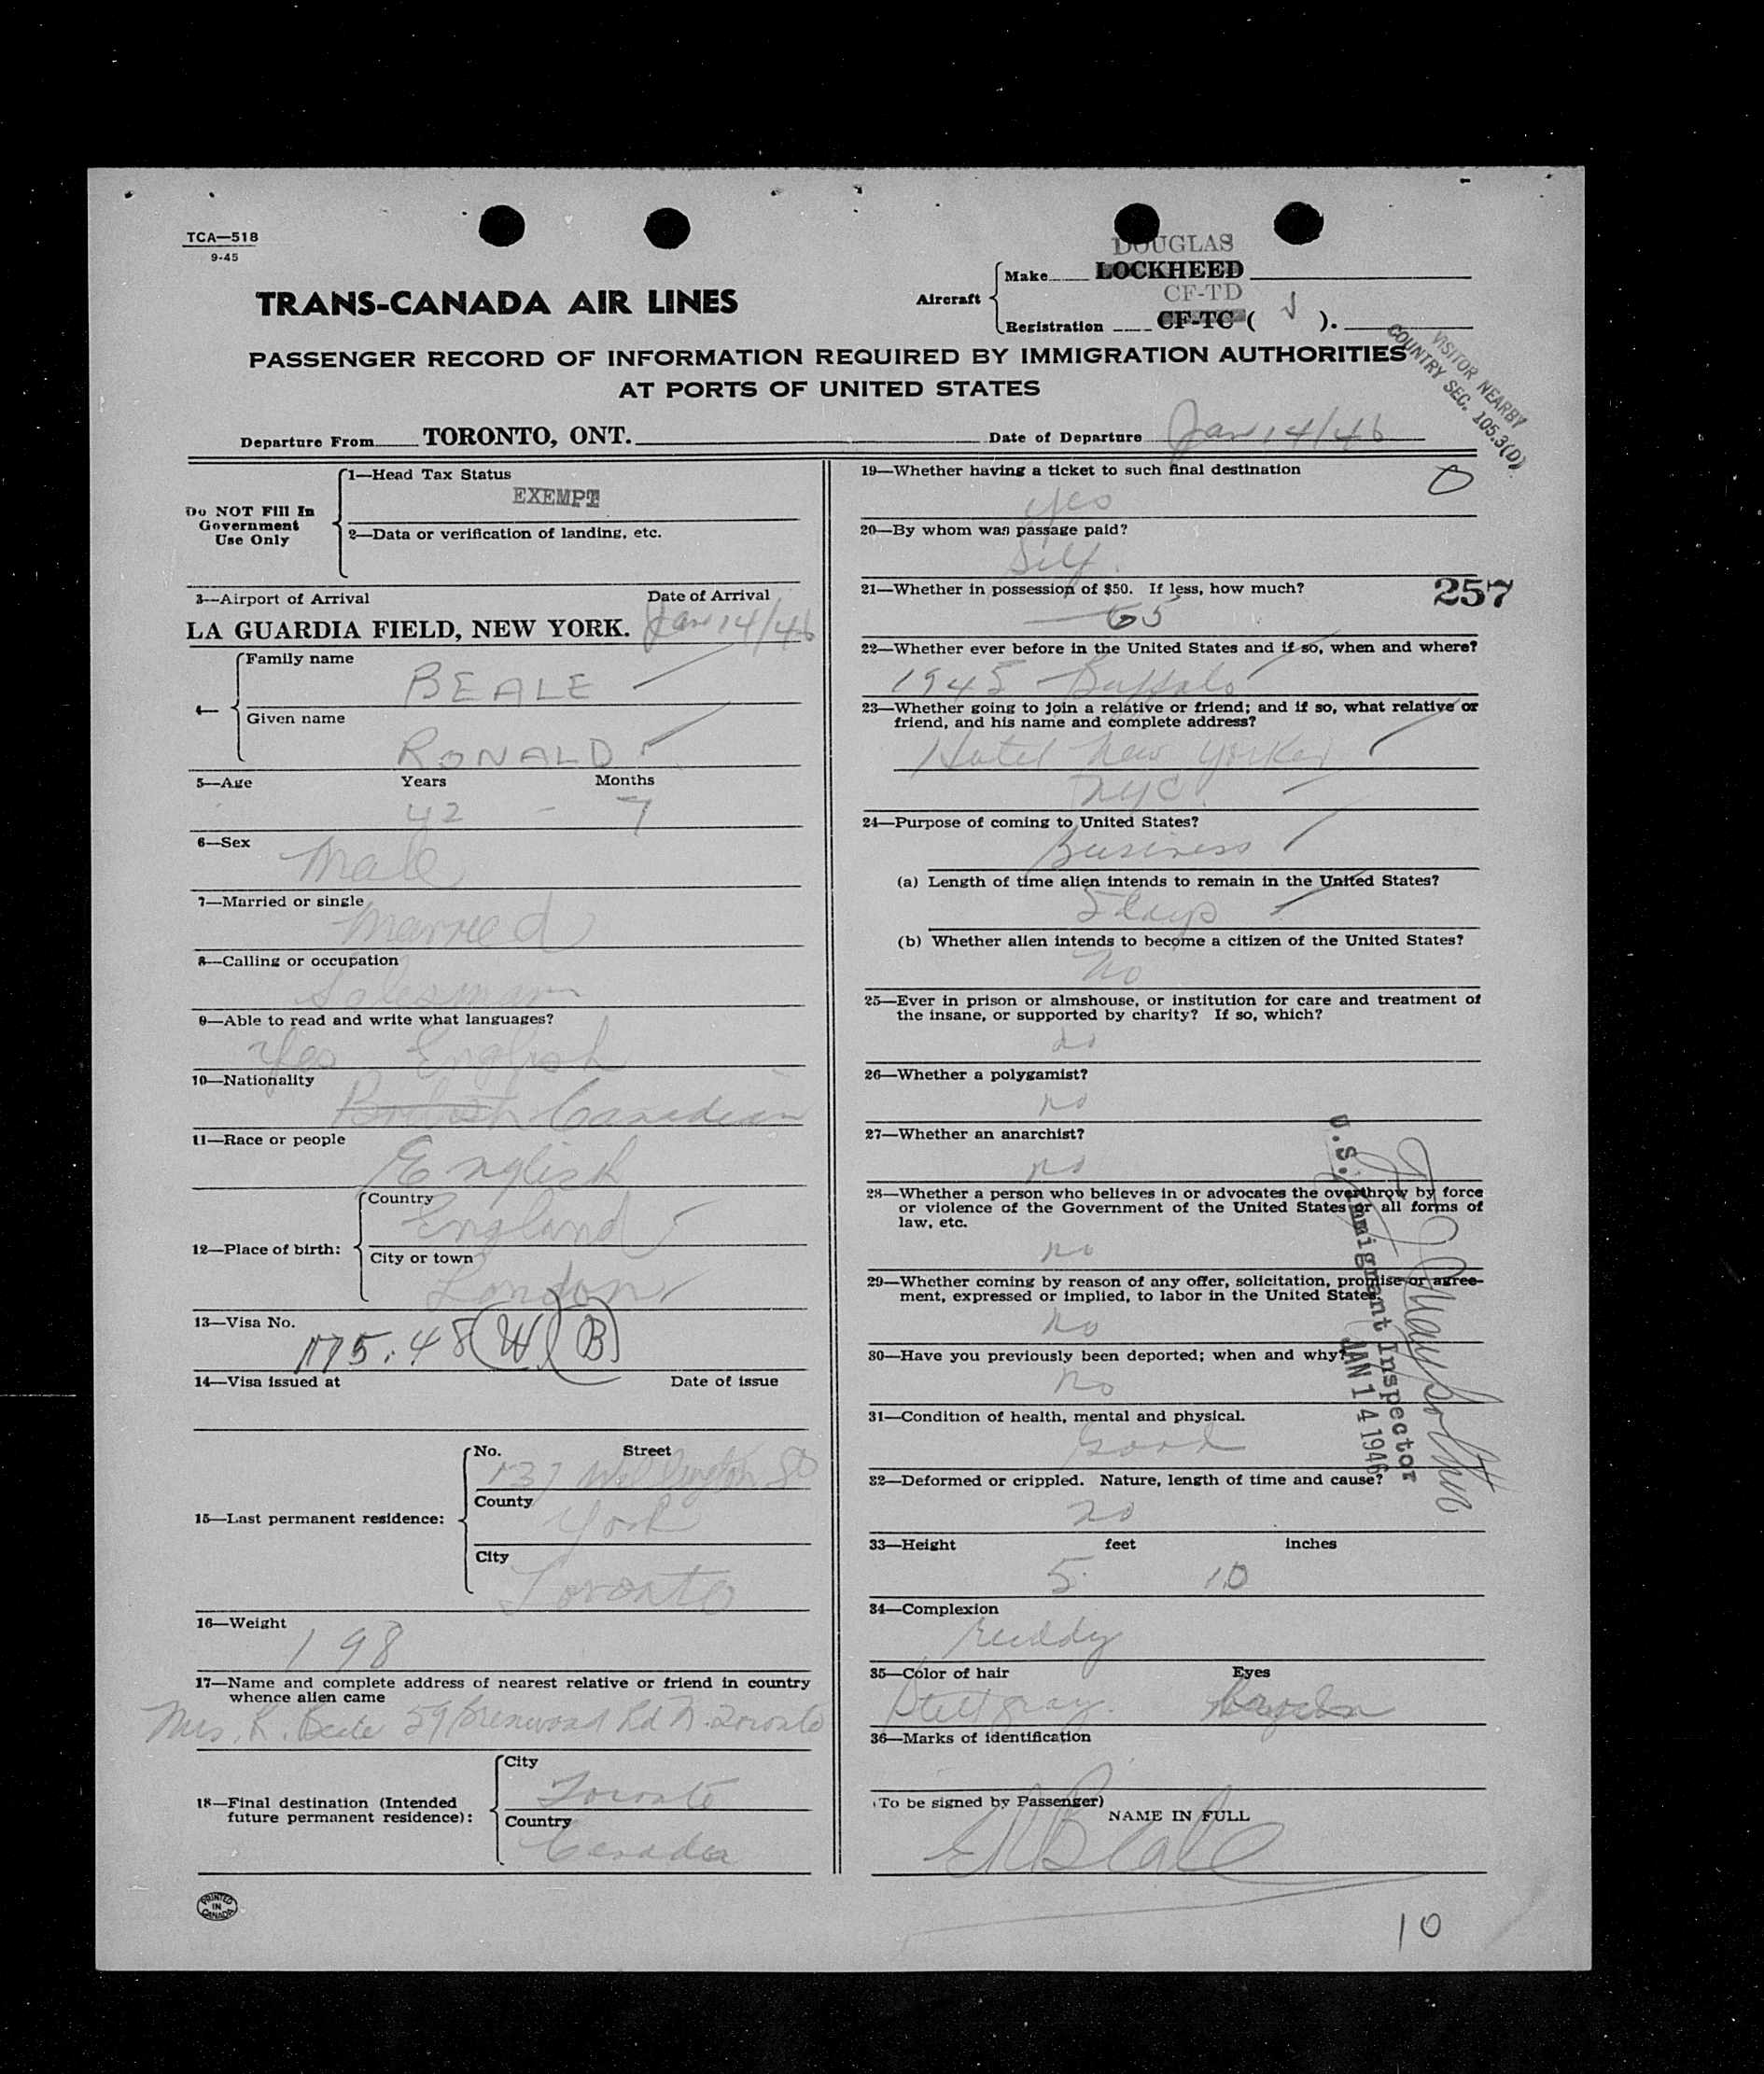 TCA—518
9-45
DOUGLAS
Aircraft
Make LOCKHEED
CF-TD
Registration CF-TC ( J ).
TRANS-CANADA AIR LINES
PASSENGER RECORD OF INFORMATION REQUIRED BY IMMIGRATION AUTHORITIES
AT PORTS OF UNITED STATES
VISITOR NEARBY
COUNTRY SEC. 105.3(D)
Departure From TORONTO, ONT. Date of Departure Jan 14/46
Do NOT Fill In
Government
Use Only
1—Head Tax Status
EXEMPT
2—Data or verification of landing, etc.
3—Airport of Arrival Date of Arrival
LA GUARDIA FIELD, NEW YORK. Jan 14/46
4—
Family name
BEALE
Given name
RONALD
5—Age Years Months
42 - 7
6—Sex
Male
7—Married or single
Married
8—Calling or occupation
Salesman
9—Able to read and write what languages?
Yes English
10—Nationality
British Canadian
11—Race or people
English
12—Place of birth:
Country
England
City or town
London
13—Visa No.
175.48 (W) (B)
14—Visa issued at Date of issue
15—Last permanent residence:
No. Street
137 Wellington St
County
York
City
Toronto
16—Weight
198
17—Name and complete address of nearest relative or friend in country
whence alien came
Mrs. R. Beale 59 Rd N. Toronto
18—Final destination (Intended
future permanent residence):
City
Toronto
Country
Canada
PRINTED
IN
CANADA
19—Whether having a ticket to such final destination
yes
0
20—By whom was passage paid?
Self.
21—Whether in possession of $50. If less, how much?
65
257
22—Whether ever before in the United States and if so, when and where?
1945 Buffalo
23—Whether going to join a relative or friend; and if so, what relative or
friend, and his name and complete address?
Hotel New Yorker
NYC.
24—Purpose of coming to United States?
Business
(a) Length of time alien intends to remain in the United States?
5 days
(b) Whether alien intends to become a citizen of the United States?
No
25—Ever in prison or almshouse, or institution for care and treatment of
the insane, or supported by charity? If so, which?
no
26—Whether a polygamist?
no
27—Whether an anarchist?
no
28—Whether a person who believes in or advocates the overthrow by force
or violence of the Government of the United States or all forms of
law, etc.
no
29—Whether coming by reason of any offer, solicitation, promise or agree-
ment, expressed or implied, to labor in the United States.
No
30—Have you previously been deported; when and why?
No
31—Condition of health, mental and physical.
Good
32—Deformed or crippled. Nature, length of time and cause?
no
33—Height feet inches
5 10
34—Complexion
Ruddy
35—Color of hair Eyes
Steel gray. Brown
36—Marks of identification
(To be signed by Passenger)
NAME IN FULL
ERBeale
U.S. Immigrant Inspector
JAN 14 1946
10